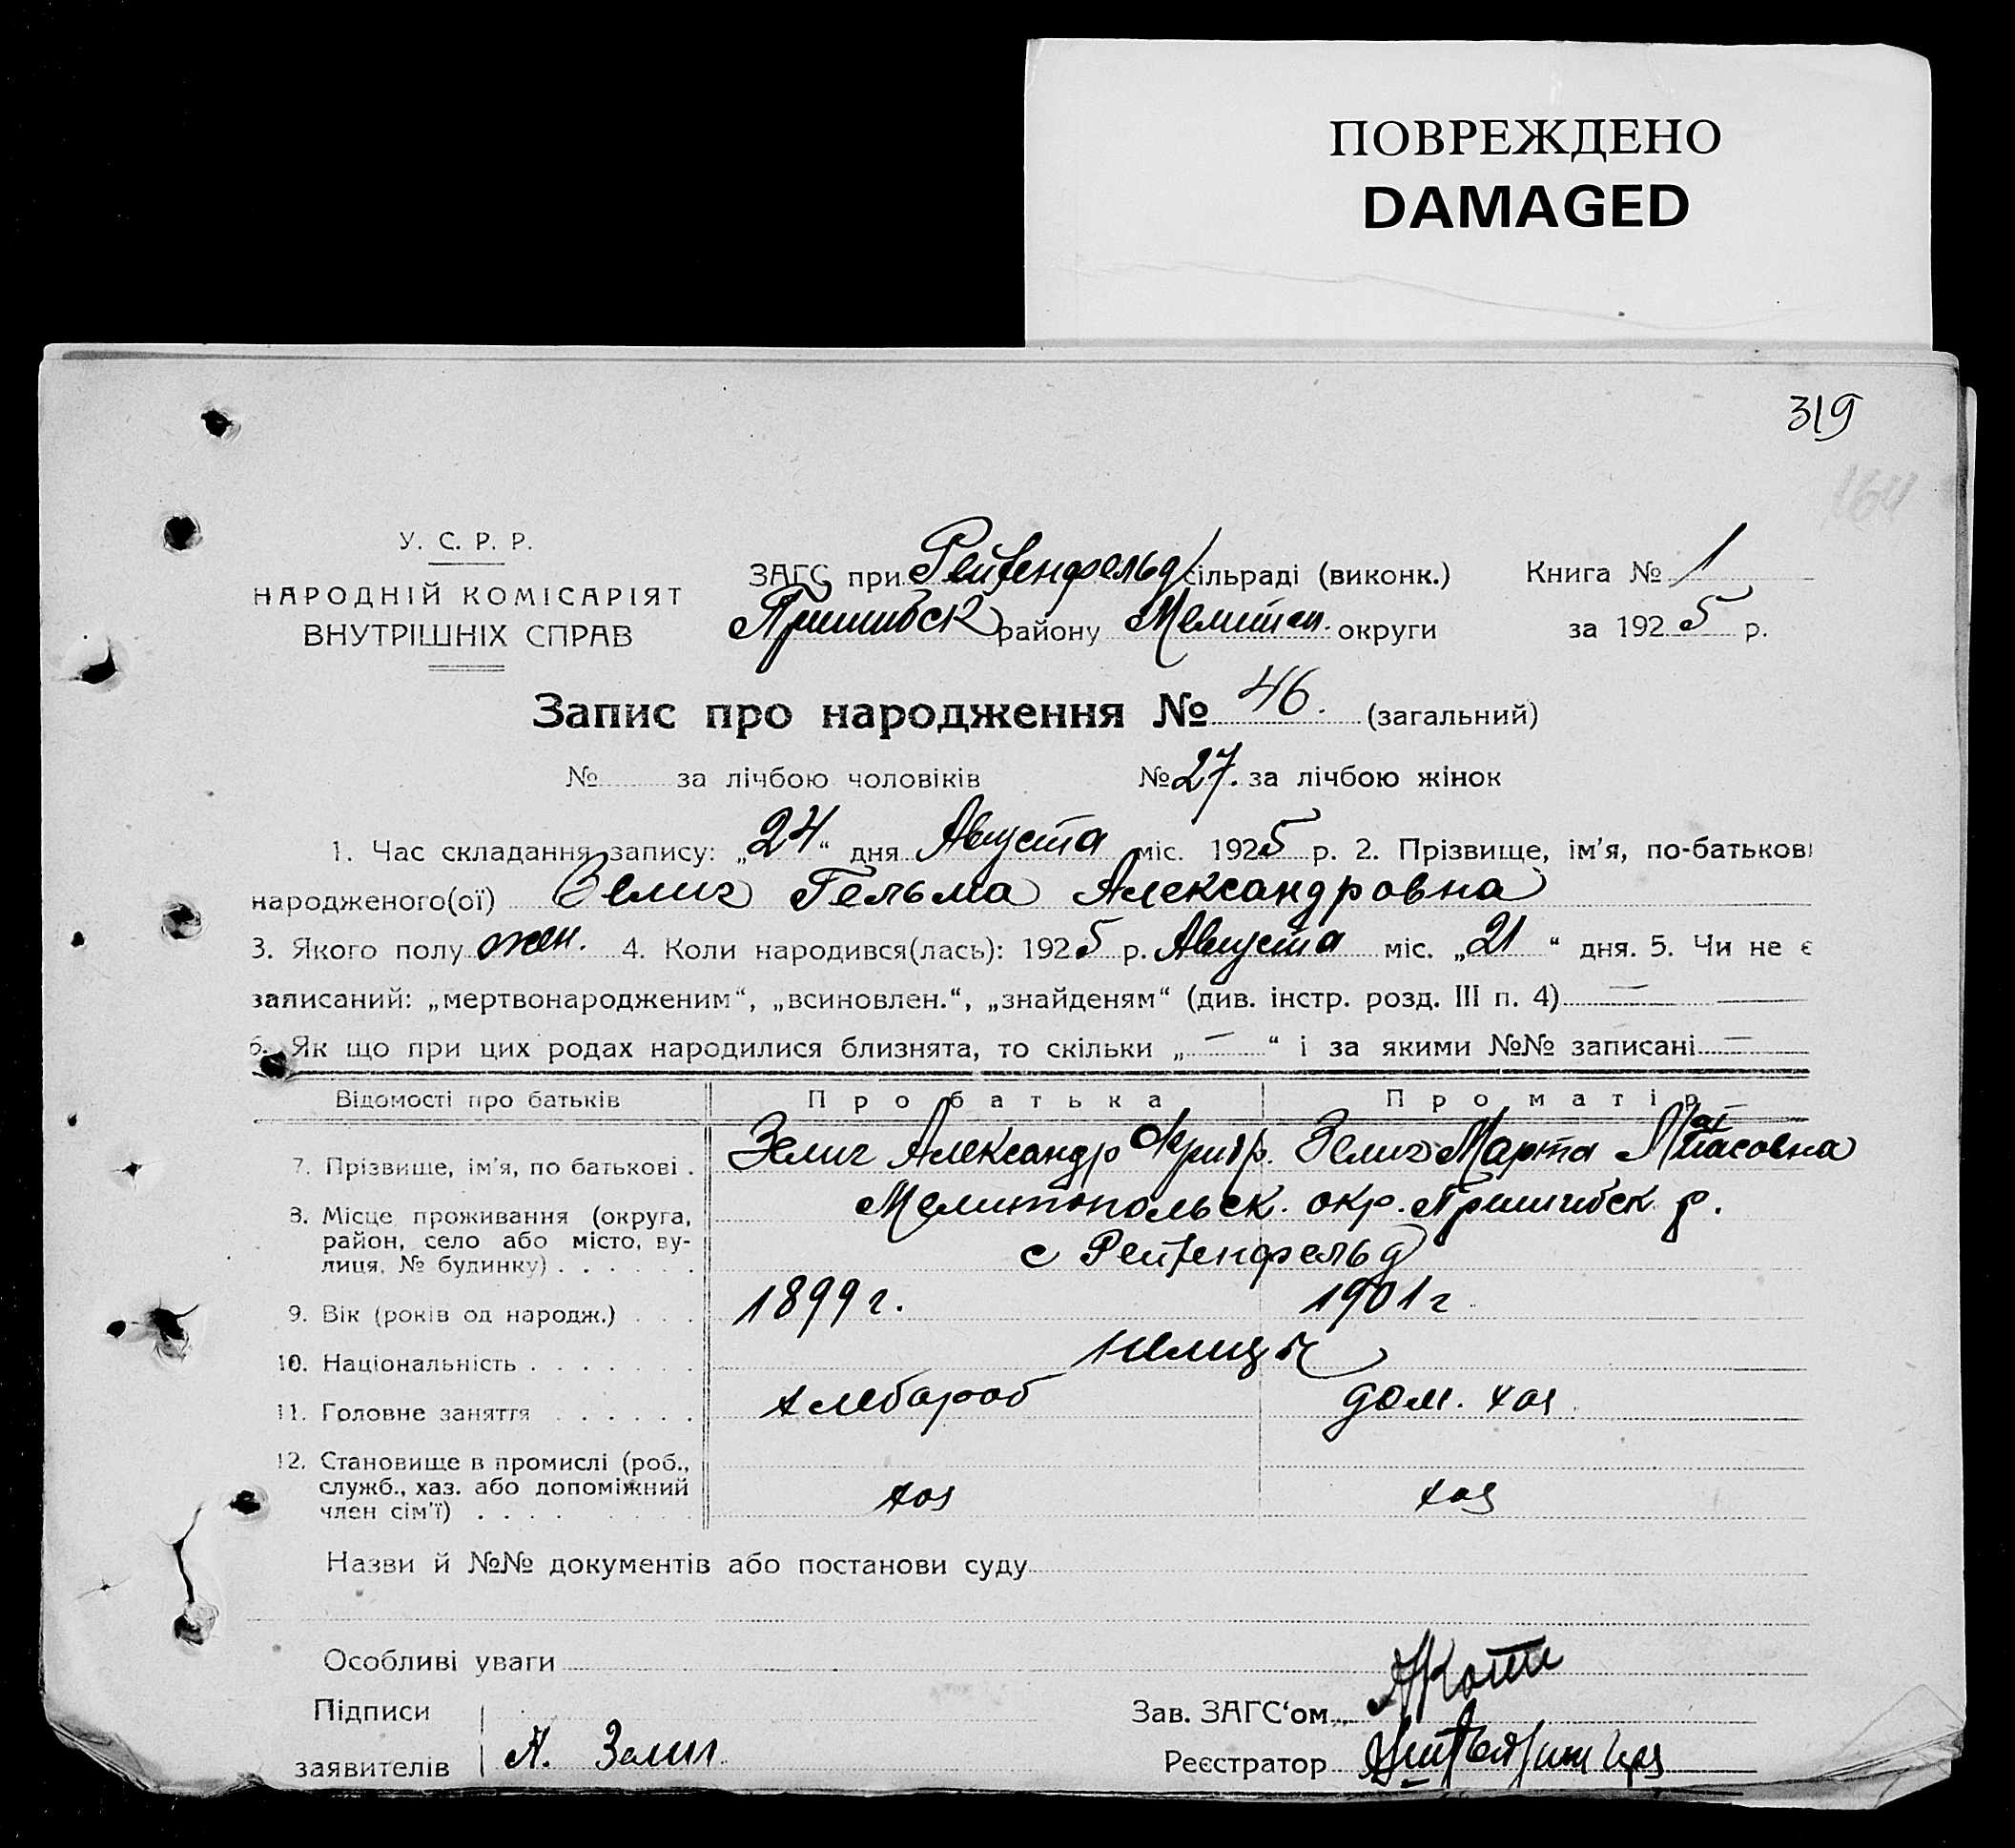 ПОВРЕЖДЕНО
DAMAGED
319
164
У. С. Р. Р.
НАРОДНІЙ КОМІСАРІЯТ
ВНУТРІШНІХ СПРАВ
ЗАГС при Рейхенфельд сільраді (виконк.) Книга № 1
Пришибск району Мелитоп. округи за 1925 р.
Запис про народження № 46. (загальний)
№ за лічбою чоловіків № 27. за лічбою жінок
1. Час складання запису: „24“ дня Августа міс. 1925 р. 2. Прізвище, ім'я, по-батькові
народженого(ої) Зелиг Гельма Александровна
3. Якого полу жен. 4. Коли народився(лась): 1925 р. Августа міс. „21“ дня. 5. Чи не є
записаний: „мертвонародженим“, „всиновлен.“, „знайденям“ (див. інстр. розд. III п. 4) —
6. Як що при цих родах народилися близнята, то скільки „—“ і за якими №№ записані —
Відомості про батьків Про батька Про матір
7. Прізвище, ім'я, по батькові . Зелиг Александр Фридр. Зелиг Марта
8. Місце проживання (округа, Мелитопольск. окр. Пришибск р.
район, село або місто, ву-
лиця, № будинку) . . . . . . с Рейхенфельд
9. Вік (років од народж.) . . . 1899 г. 1901 г
10. Національність . . . . . . . немцы
11. Головне заняття . . . . . . хлебороб дом. хоз
12. Становище в промислі (роб.,
служб., хаз. або допоміжний хоз хоз
член сім'ї) . . . .
Назви й №№ документів або постанови суду
Особливі уваги
Підписи Зав. ЗАГС‘ом
заявителів А. Зелиг Реєстратор